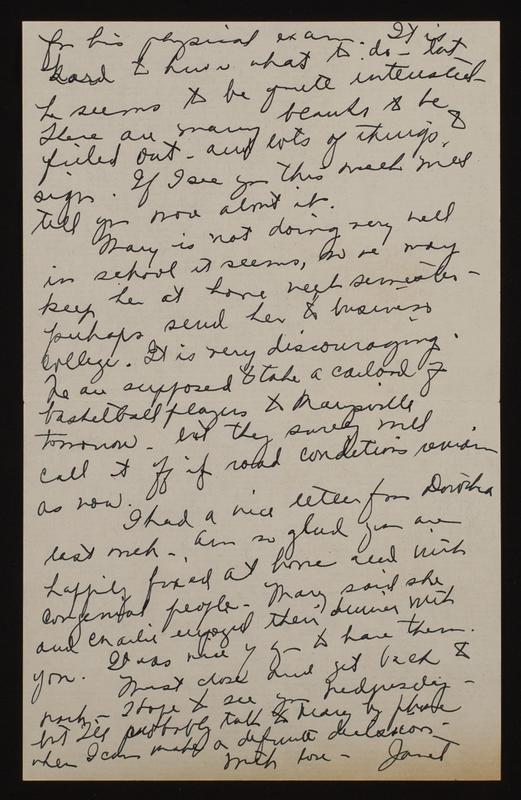 for his physical exam. It is
hard to know what to do - but
he seems to be quite interested
There are many blanks to be
filled out - and lots of things to
sign. If I see you this week will
tell you more about it.
Mary is not doing very well
in school it seems, so we may
keep her at home next semester -
perhaps send her to business
college. It is very discouraging.
We are supposed to take a carload of
basketball players to Marysville
tomorrow - but they surely will
call it off if road conditions remain
as now.
I had a nice letter from Dorothea
last week - am so glad you are
happily fixed at home and with
congenial people - Mary said she
and Charlie enjoyed their dinner with
you. It was nice of you to have them.
Must close and get back to
work - I hope to see you Wednesday -
but I'll probably talk to Mary by phone
when I can make a definite decision -
With love - Janet